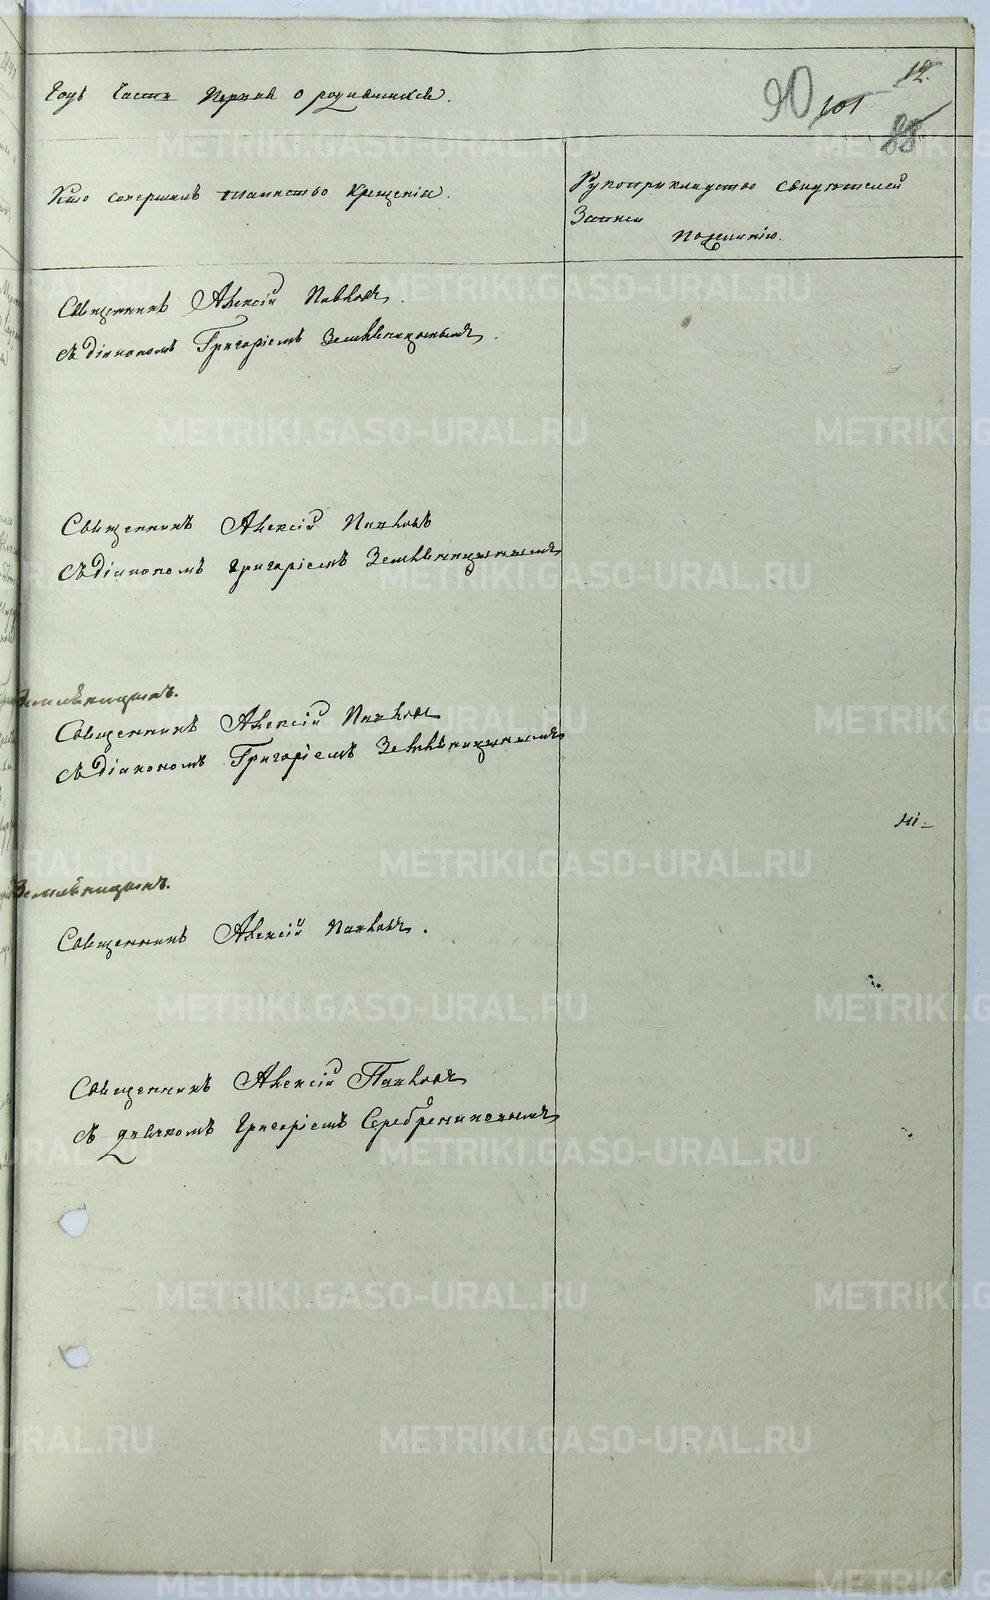 12.
90 101
88
Годъ Часть Первая о родившихся.
Кто совершалъ таинство крещенія.
Рукоприкладство свидѣтелей
Записи
по желанію.
Священникъ Алексій Павловъ.
Съ діакономъ Григоріемъ Земляницынымъ.
Священникъ Алексій Павловъ
Съ діакономъ Григоріемъ Земляницынымъ
Земляницынъ.
Священникъ Алексій Павловъ
Съ діакономъ Григоріемъ Земляницынымъ
Земляницынъ.
Священникъ Алексій Павловъ.
Священникъ Алексій Павловъ
Съ дьячкомъ Григоріемъ Серебрениковымъ
METRIKI.GASO-URAL.RU